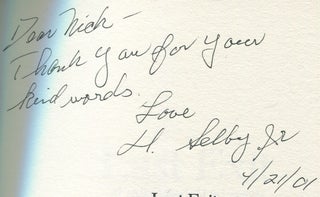 Dear Nick –
Thank you for your
kind words.
Love
H. Selby Jr
4/21/01